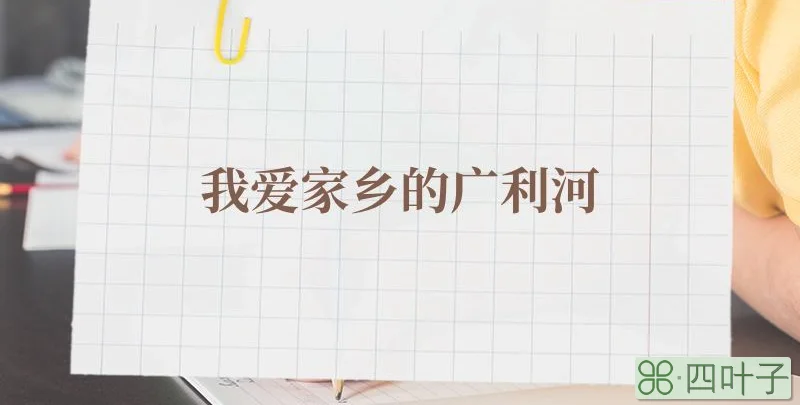 我爱家乡的广利河
四叶子